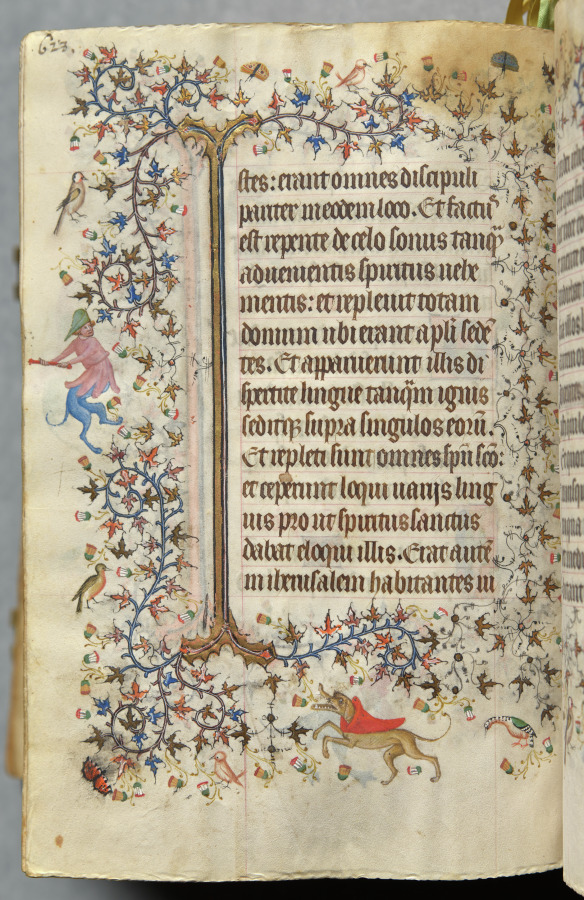 623.
stes: erant omnes discipuli
pariter in eodem loco. Et factū
est repente de celo sonus tanq̄
aduenientis spiritus uehe
mentis: et repleuit totam
domum ubi erant apl̄i sedē
tes. Et apparuerunt illis di
spertite lingue tanq̄m ignis
seditq; supra singulos eorū.
Et repleti sunt omnes sp̄u sc̄o:
et ceperunt loqui uarijs ling
uis pro ut spiritus sanctus
dabat eloqui illis. Erat autē
in iherusalem habitantes iu